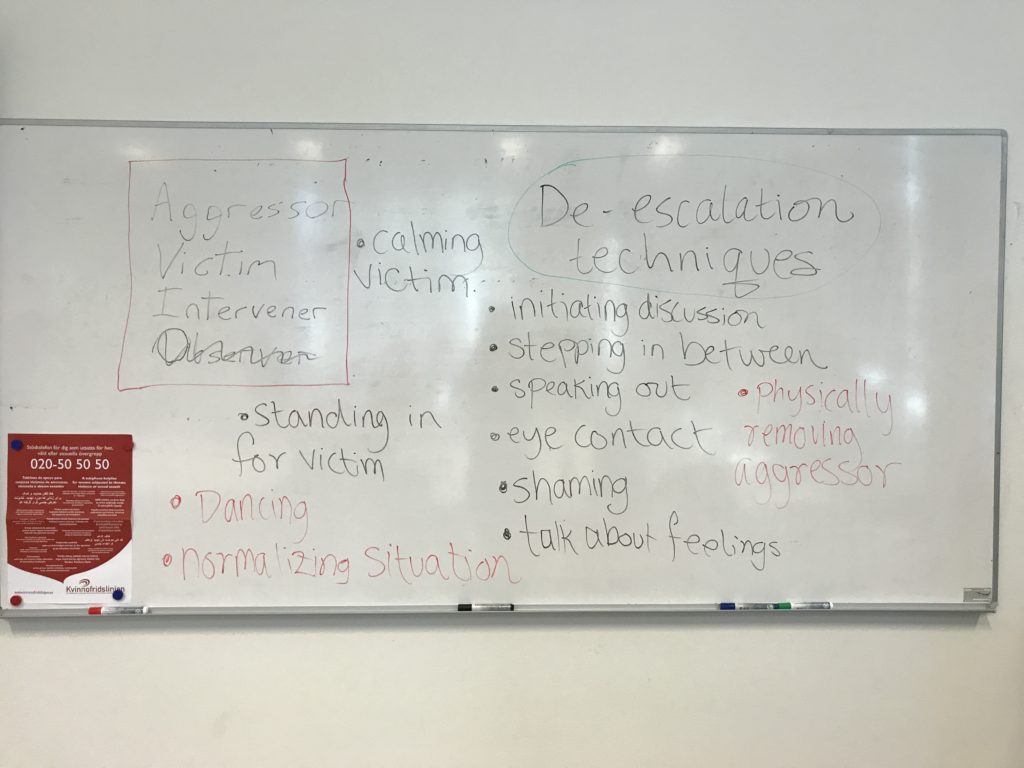 Aggressor
Victim
Intervener
Observer
• calming
victim
De-escalation
techniques
• initiating discussion
• stepping in between
• speaking out
• eye contact
• shaming
• talk about feelings
• Physically
removing
aggressor
• standing in
for victim
• Dancing
• normalizing situation
Stödtelefon för dig som utsatts för hot,
våld eller sexuella övergrepp
020-50 50 50
Kvinnofridslinjen